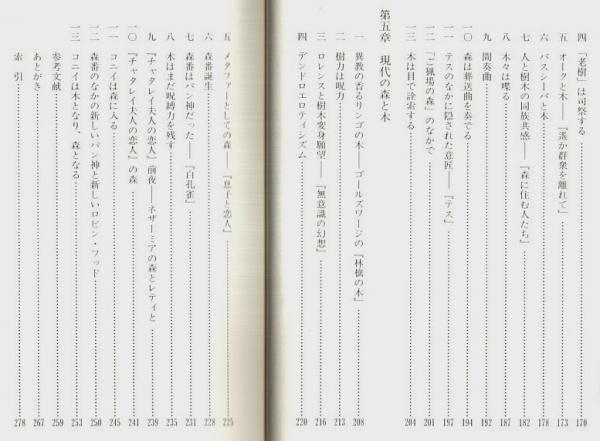 四 「老樹」は司祭する 170
五 オークと木――『遥か群衆を離れて』 173
六 バスシーバと木 178
七 人と樹木の同族共感――『森に住む人たち』 182
八 木々は喋る 187
九 間奏曲 192
一〇 森は葬送曲を奏でる 194
一一 テスのなかに隠された意匠――『テス』 197
一二 「ご猟場の森」のなかで 201
一三 木は目で詮索する 204
第五章 現代の森と木
一 異教の香るリンゴの木――ゴールズワージの『林檎の木』 208
二 樹力は呪力 213
三 ロレンスと樹木変身願望――『無意識の幻想』 216
四 デンドロエロティシズム 220
五 メタファーとしての森――『息子と恋人』 225
六 森番誕生 228
七 森番はパン神だった――『白孔雀』 231
八 木はまだ呪縛力を残す 235
九 『チャタレイ夫人の恋人』前夜――ネザーミアの森とレティと 239
一〇 『チャタレイ夫人の恋人』の森 241
一一 コニイは森に入る 245
一二 森番のなかの新しいパン神と新しいロビン・フッド 250
一三 コニイは木となり、森となる 253
参考文献 259
あとがき 267
索引 278